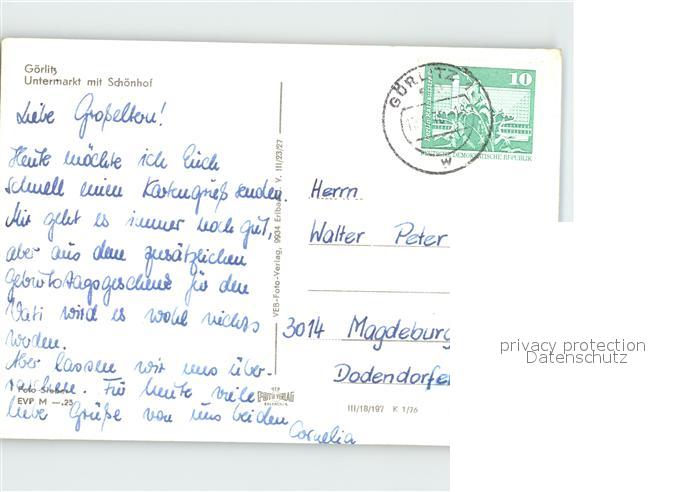 Görlitz
Untermarkt mit Schönhof
Liebe Großeltern!
Heute möchte ich Euch
schnell einen Kartengruß senden.
Mir geht es immer noch gut,
aber aus dem zusätzlichen
Geburtstagsgeschenk für den
Vati wird es wohl nichts
werden.
Aber lassen wir uns über-
raschen. Für heute viele
liebe Grüße von uns beiden
Cornelia
EVP M —.25
VEB-Foto-Verlag, 9934 Erlbach V. III/23/27
GÖRLITZ 1
W
10
DEUTSCHE DEMOKRATISCHE REPUBLIK
Herrn
Walter Peter
3014 Magdeburg
Dodendorfer
FOTO-VERLAG
III/18/197 K 1/76
privacy protection
Datenschutz